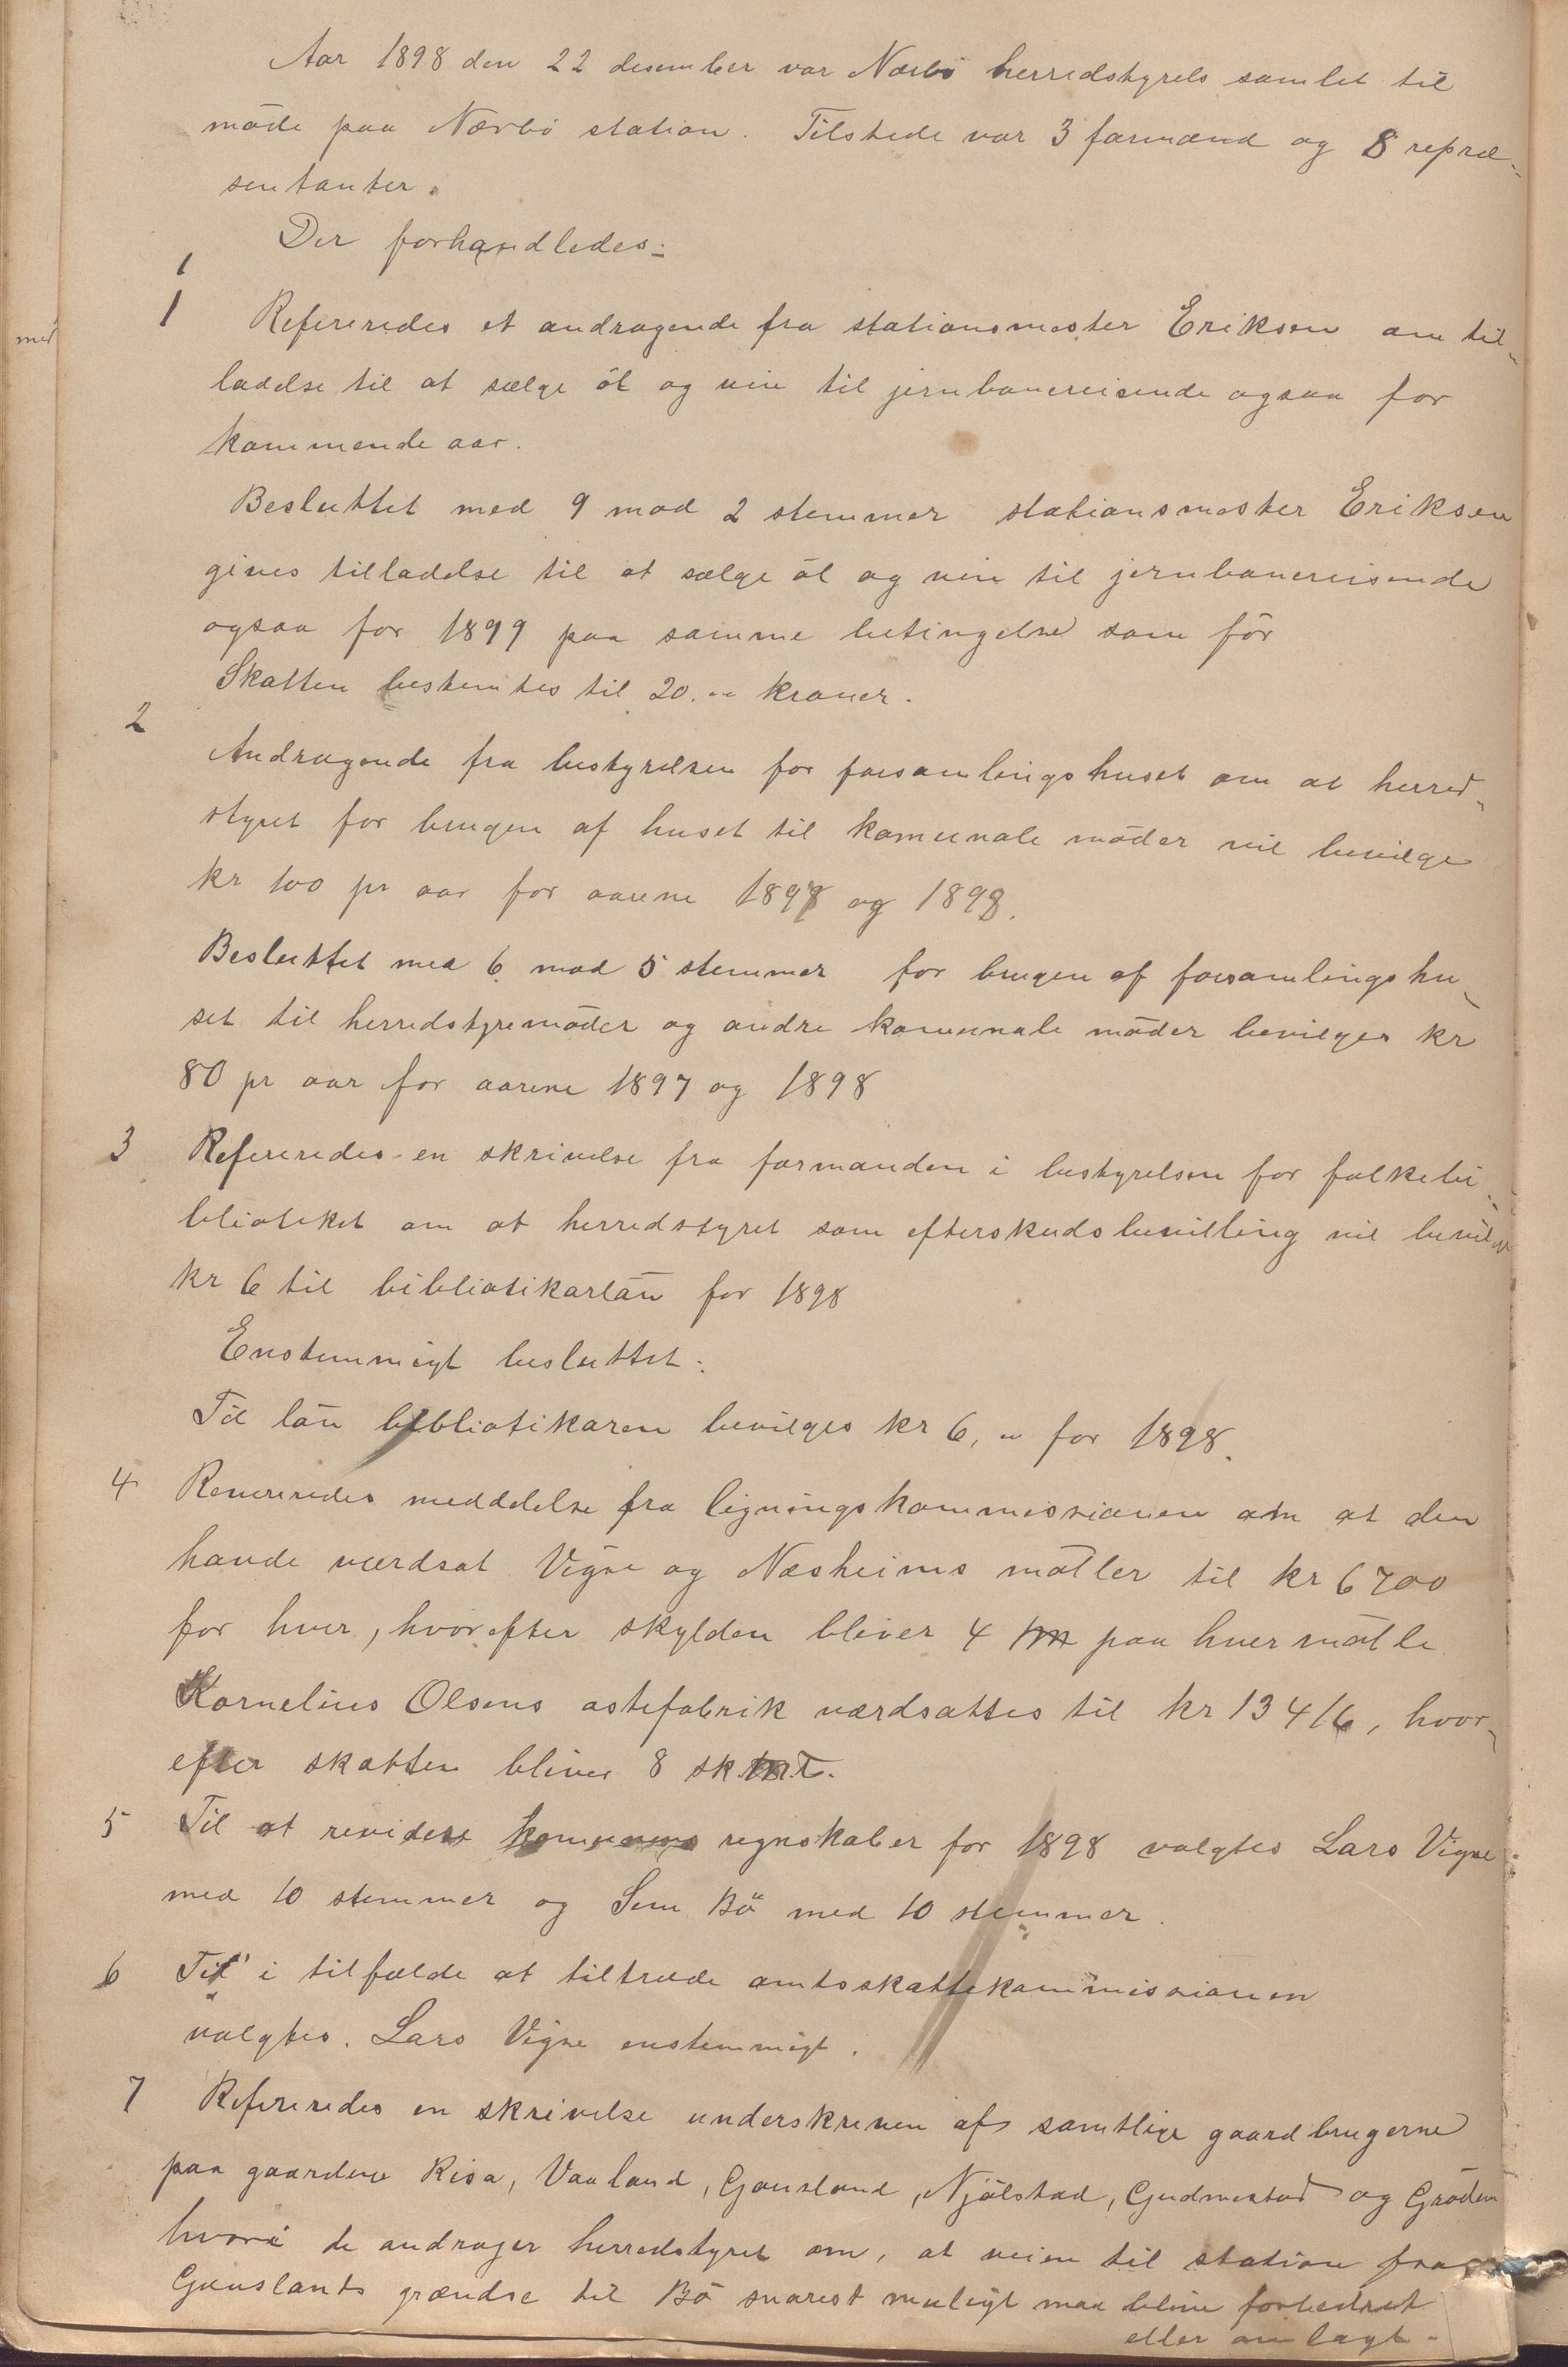 Aar 1898 den 22 desember var Nærbö herredstyrels samlet til
möde paa Nærbö station. Tilstede var 3 formænd og 8 repræ-
sentanter.
Der forhandledes:
1 Refereredes et andragende fra stationsmester Eriksen om til-
med
ladelse til at sælge öl og vin til jernbanereisende ogsaa for
kommende aar.
Besluttet med 9 mod 2 stemmer stationsmester Eriksen
gives tilladelse til at sælge öl og vin til jernbanereisende
ogsaa for 1899 paa samme betingelse som för
Skatten bestemtes til 20.00 kroner.
2
Andragende fra bestyrelsen for forsamlingshuset om at herred-
styret for brugen af huset til komunale möder vil bevilge
kr 100 pr aar for aarene 1897 og 1898.
Besluttet med 6 mod 5 stemmer for brugen af forsamlingshu-
set til herredstyremöder og andre komunale möder bevilges kr
80 pr aar for aarene 1897 og 1898
3 Refereredes en skrivelse fra formanden i bestyrelsen for folkebi-
blioteket om at herredstyret som efterskudsbevilling vil bevilge
kr 6 til bibliotikarlön for 1898
Enstemmigt besluttet:
Til lön bibliotikaren bevilges kr 6, " for 1898.
4 Refereredes meddelelse fra ligningskommissionen om at den
havde værdsat Vigre og Næsheims möller til kr 6700
for hver, hvorefter skylden bliver 4 m paa hver mölle
Kornelius Olsens ostefabrik værdsattes til kr 13416, hvor-
efter skatten bliver 8 sk.m.
5 Til at revidere komunens regnskaber for 1898 valgtes Lars Vigre
med 10 stemmer og Sem Bö med 10 stemmer.
6 Til i tilfælde at tiltræde amtsskattekommissionen
valgtes. Lars Vigre enstemmigt.
7 Refereredes en skrivelse underskreven af samtlige gaardbrugerne
paa gaardene Risa, Vaaland, Gausland, Njölstad, Gudmestad og Gröden
hvori de andrager herredstyret om, at veien til station fra
Gauslands grændse til Bö snarest muligt maa blive forbedret
eller omlagt.